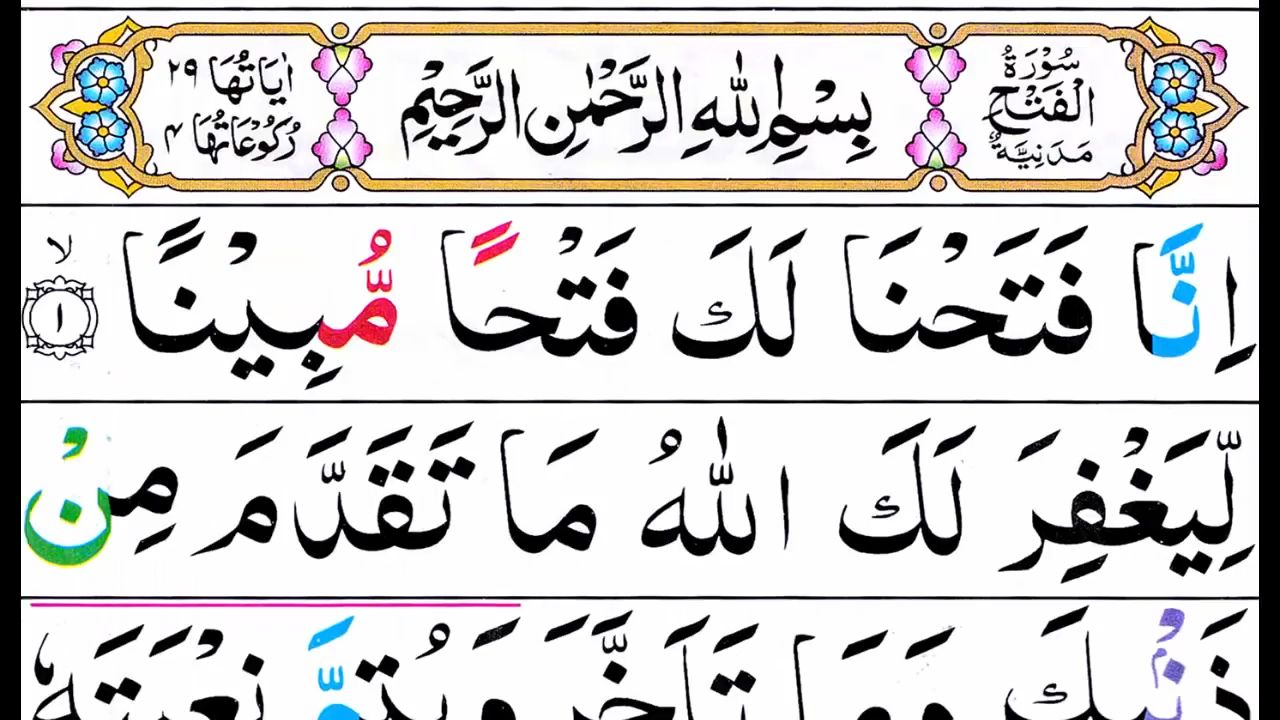 سُوْرَةُ الْفَتْحِ مَدَنِيَّةٌ
بِسْمِ اللّٰهِ الرَّحْمٰنِ الرَّحِيْمِ
اٰيَاتُهَا ٢٩
رُكُوْعَاتُهَا ۴
اِنَّا فَتَحْنَا لَكَ فَتْحًا مُّبِيْنًا ۙ ١
لِّيَغْفِرَ لَكَ اللّٰهُ مَا تَقَدَّمَ مِنْ
ذَنْۢبِكَ وَمَا تَاَخَّرَ وَيُتِمَّ نِعْمَتَهٗ